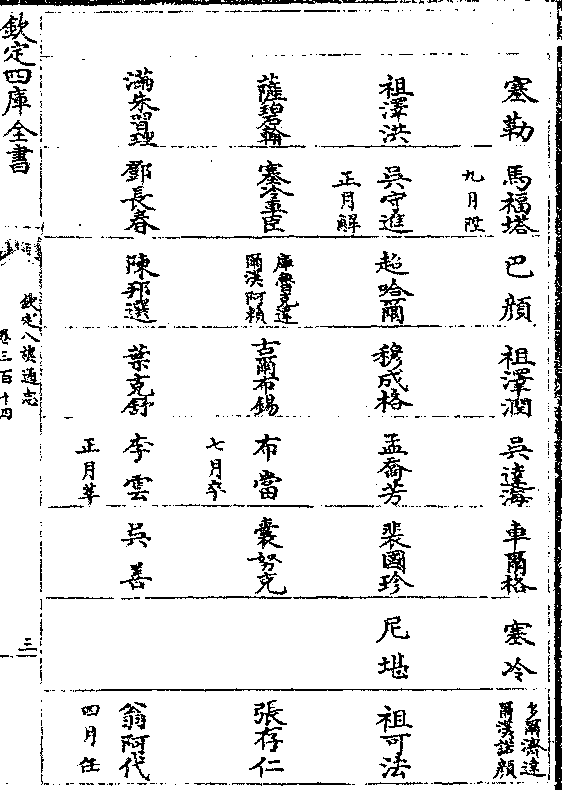 塞勒 馬福塔 巴顏 祖澤潤 吳達海 車爾格 塞冷 多爾濟達
爾漢諾顏
九月陞
祖澤洪 吳守進 超哈爾 穆成格 孟喬芳 裴國珍 尼堪 祖可法
正月解
薩碧翰 塞冷車臣 庫魯克達
爾漢阿賴 古爾布錫 布當 囊努克 張存仁
七月卒
滿朱習理 鄧長春 陳邦選 葉克舒 李雲 吳善 翁阿代
正月革 四月任
欽定四庫全書
欽定八旗通志
卷三百十四
三